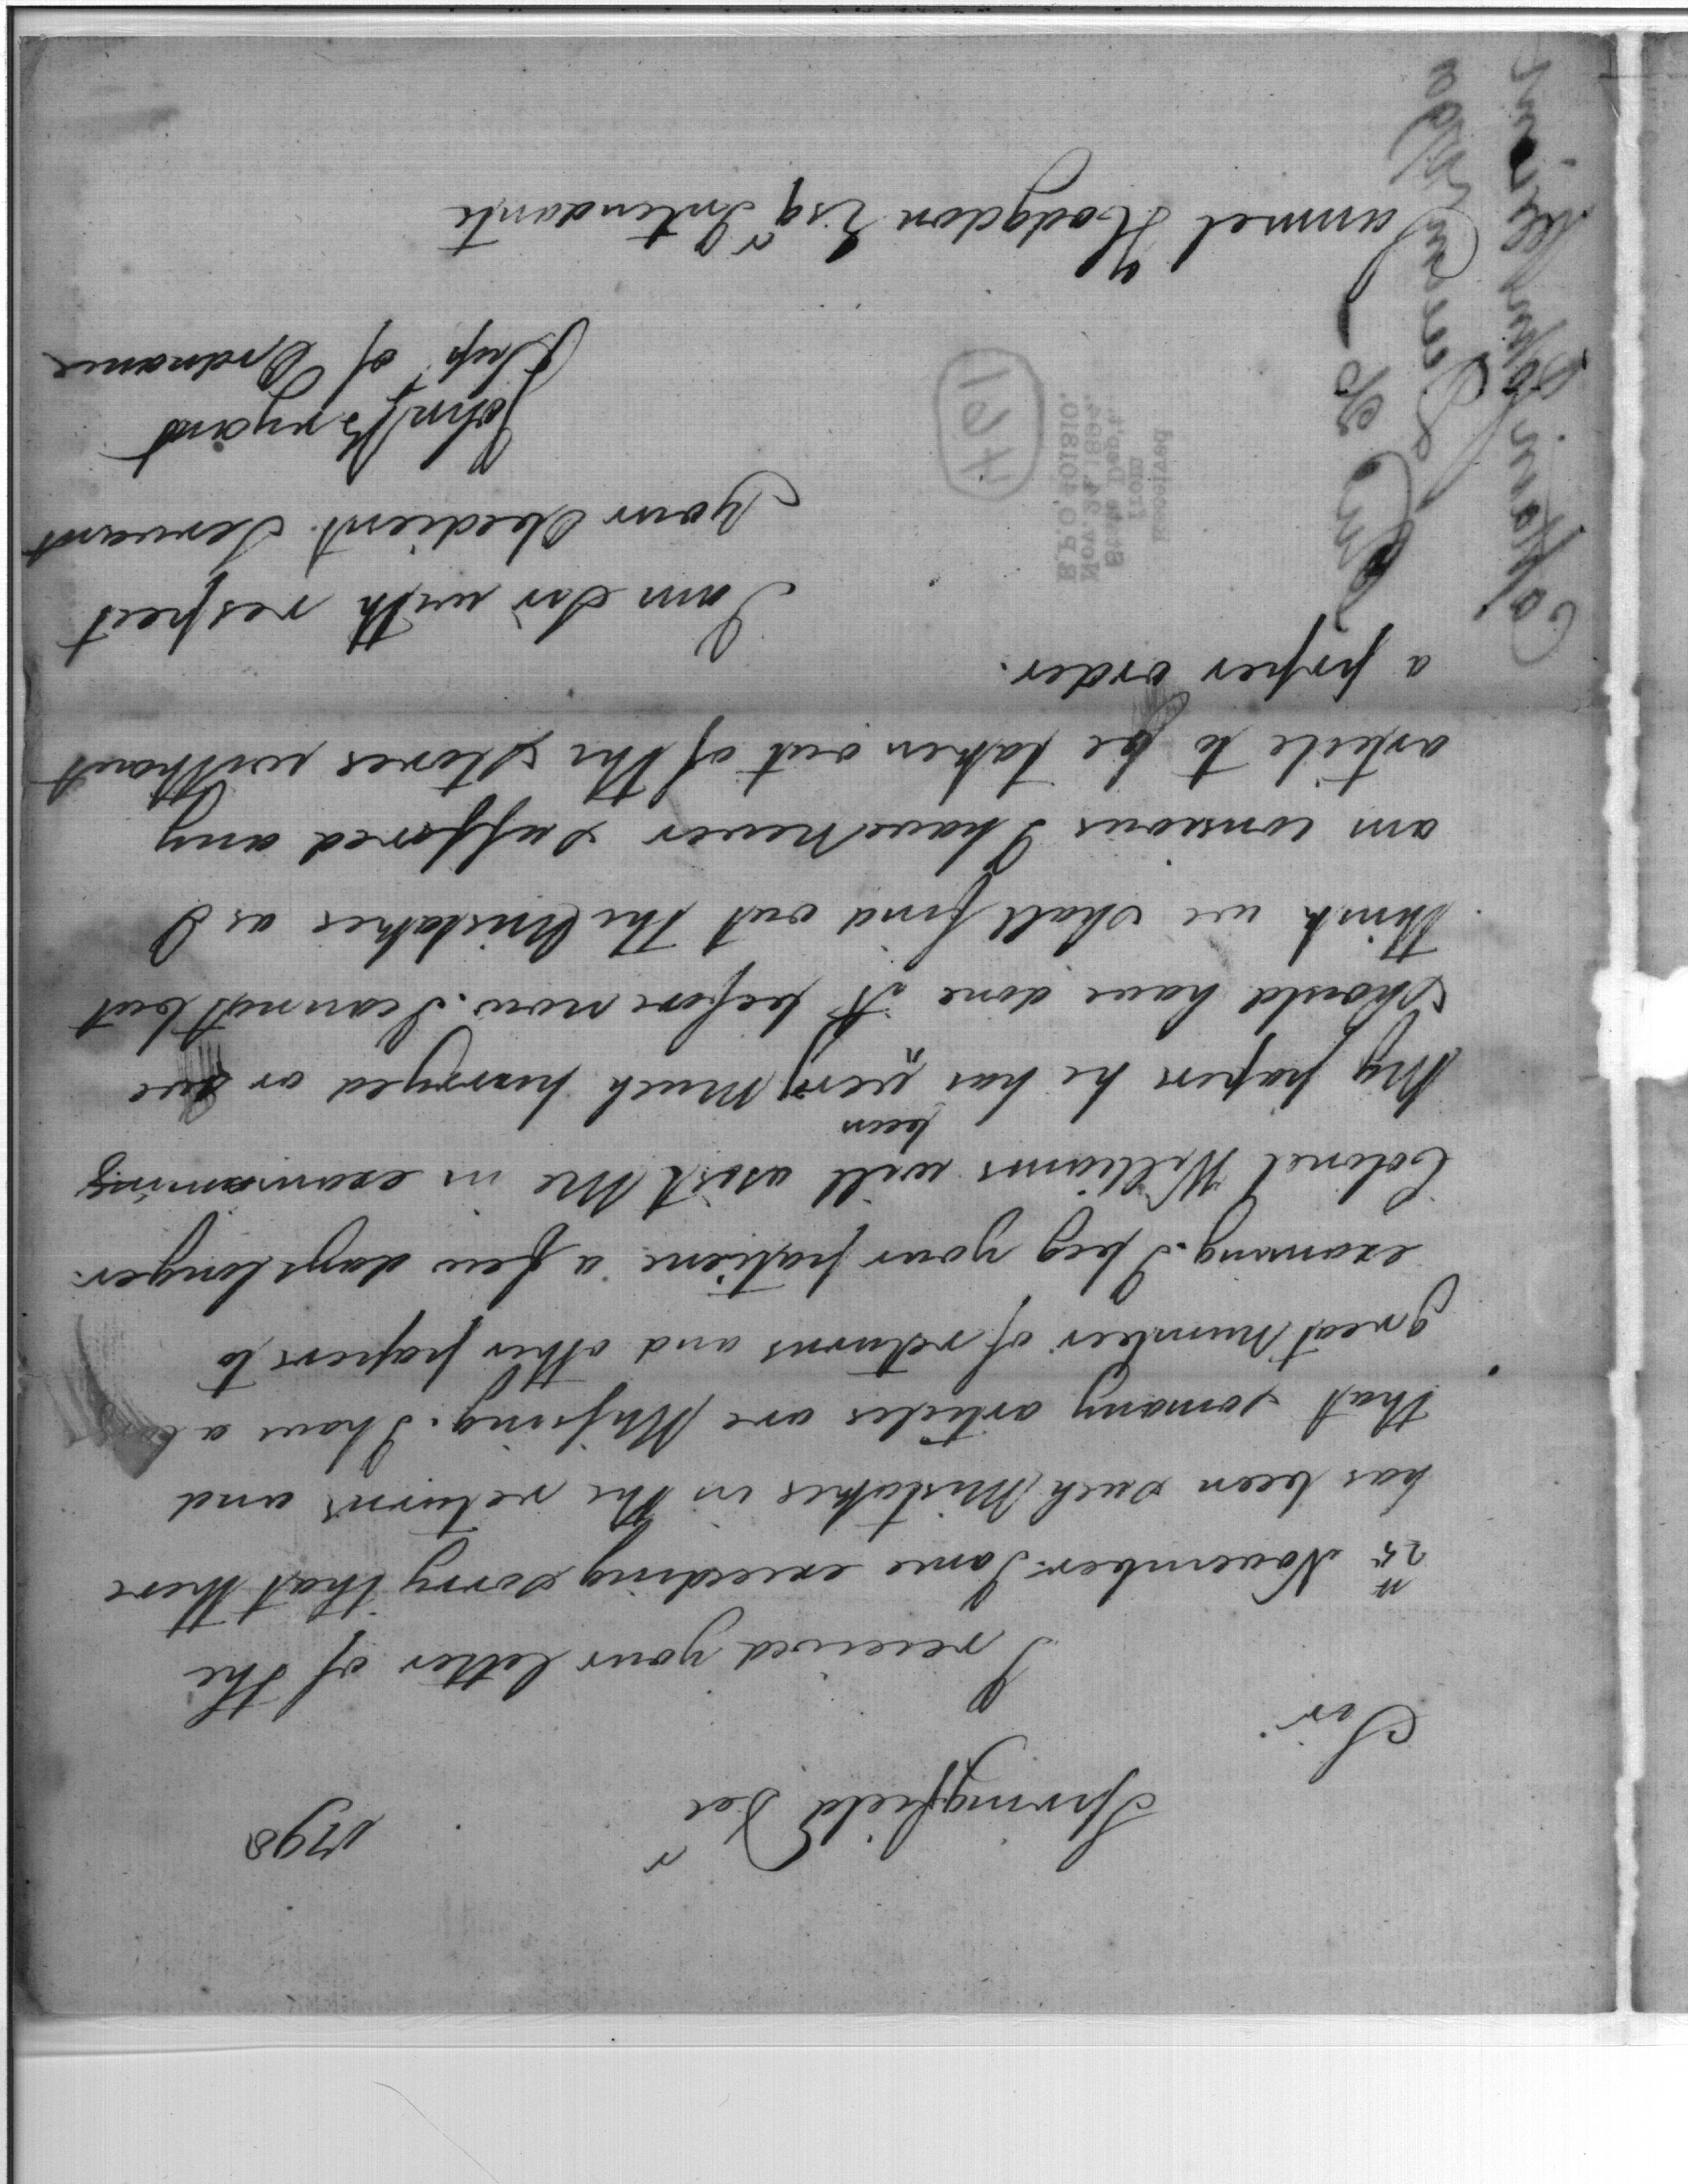 Springfield Decr 1790
Sir
I received your letter of the
25th November. I ame exceeding sorry that there
has been such Mistakes in the returns and
that somany articles are Missing. I have a
great Number of returns and other papers to
examing. I beg your patience a few days longer.
Colonel Williams will asist Me in examianing
My papers he has been very Much hurryed or we
should have done it before now. I cannot but
think we shall find out the Mistakes as I
am consious I have Never suffored any
article to be taken out of the stores without
a proper order.
I am Sir with respect
Your Obedient Servant
John Bryant
Sup.t of Ordnance
Samuel Hodgdon Esqr Intendante
1791
Received
from
State Dep't.
Nov 24, 1894.
R.P.O. 401810.